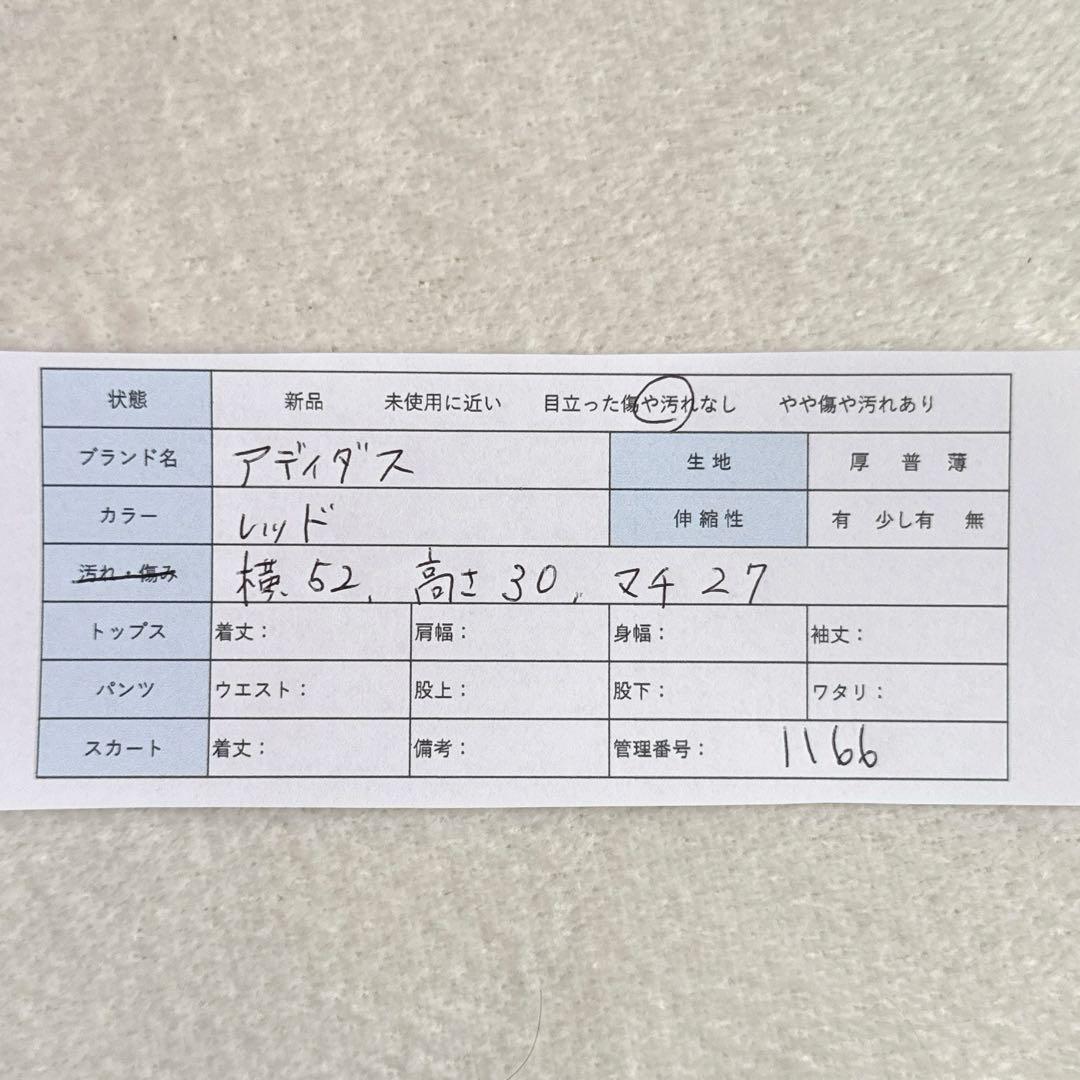 状態 新品 未使用に近い 目立った傷や汚れなし やや傷や汚れあり
ブランド名 アディダス 生地 厚 普 薄
カラー レッド 伸縮性 有 少し有 無
汚れ・傷み 横52, 高さ30, マチ27
トップス 着丈: 肩幅: 身幅: 袖丈:
パンツ ウエスト: 股上: 股下: ワタリ:
スカート 着丈: 備考: 管理番号: 1166